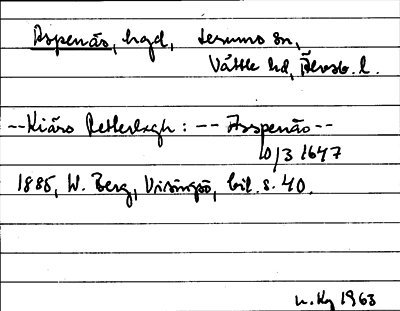 Aspenäs, hgd, Lerums sn,
Vättle hd, Älvsb. l.
--Kiäro Petter Lagh: -- Asspenäs--
10/3 1647
1885, W. Berg, Visingsö, bil. s. 40.
n. Kg 1963